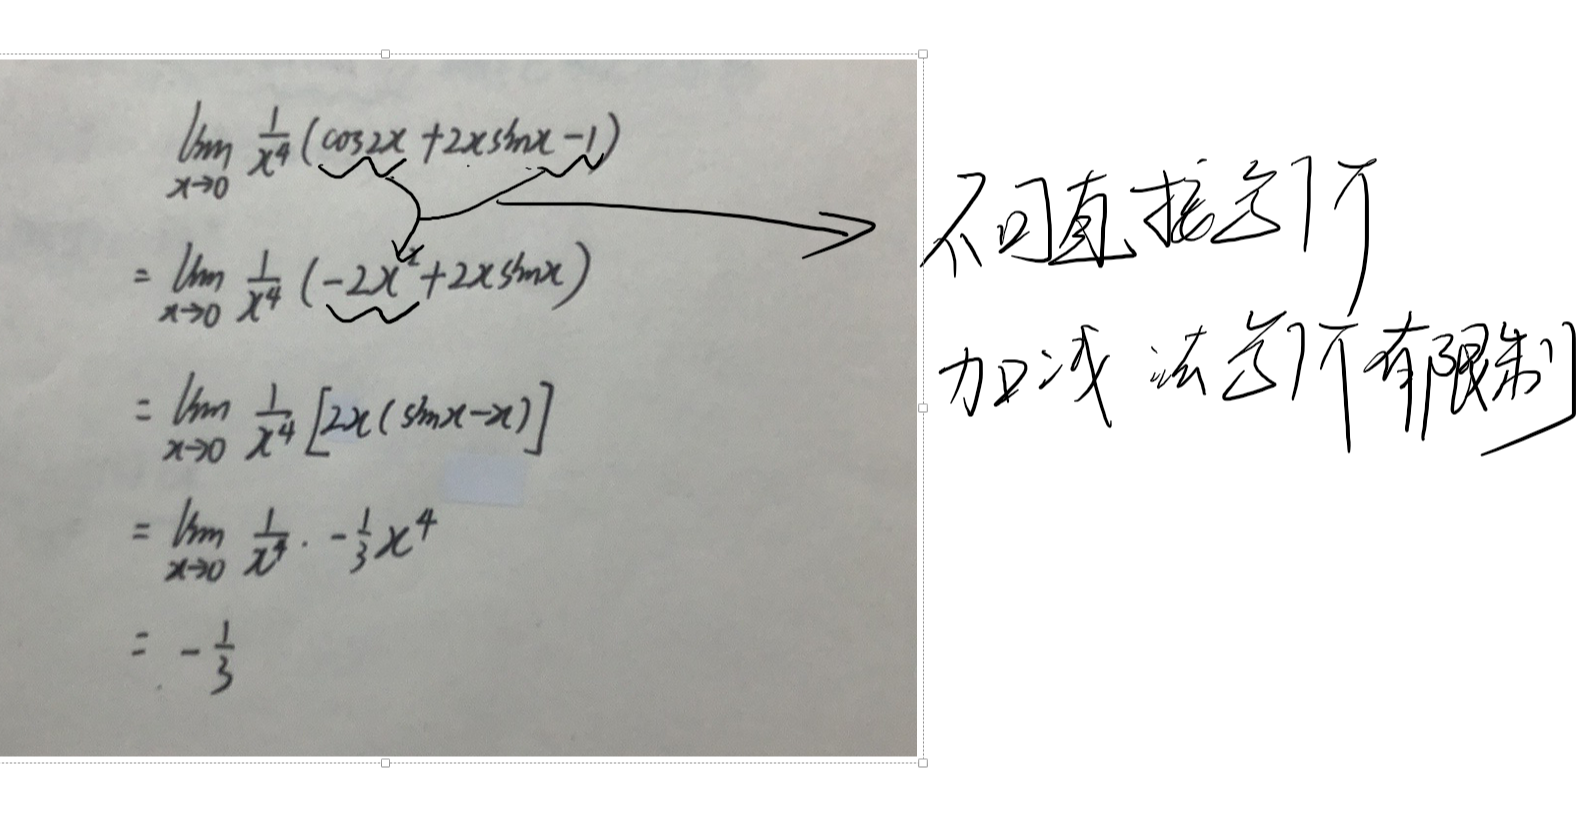 lim x→0 1/x⁴ (cos2x + 2xsinx - 1)
= lim x→0 1/x⁴ (-2x² + 2xsinx)
= lim x→0 1/x⁴ [2x(sinx-x)]
= lim x→0 1/x⁴ · -1/3 x⁴
= -1/3
不可直接等价
加减法等价有限制